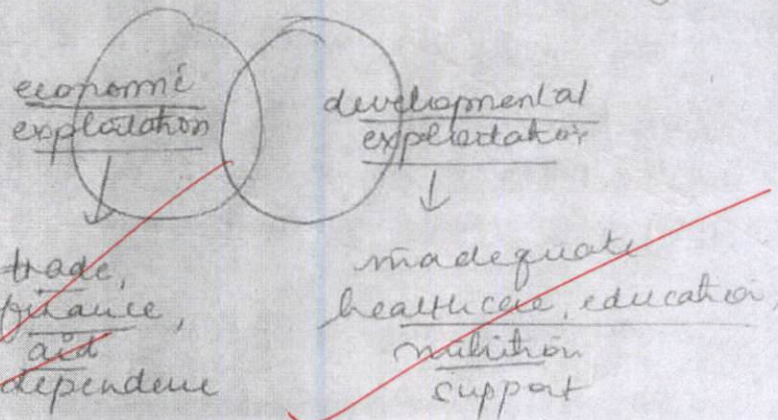 economic
exploitation
developmental
exploitation
trade,
finance,
aid
dependence
inadequate
healthcare, education
nutrition
support